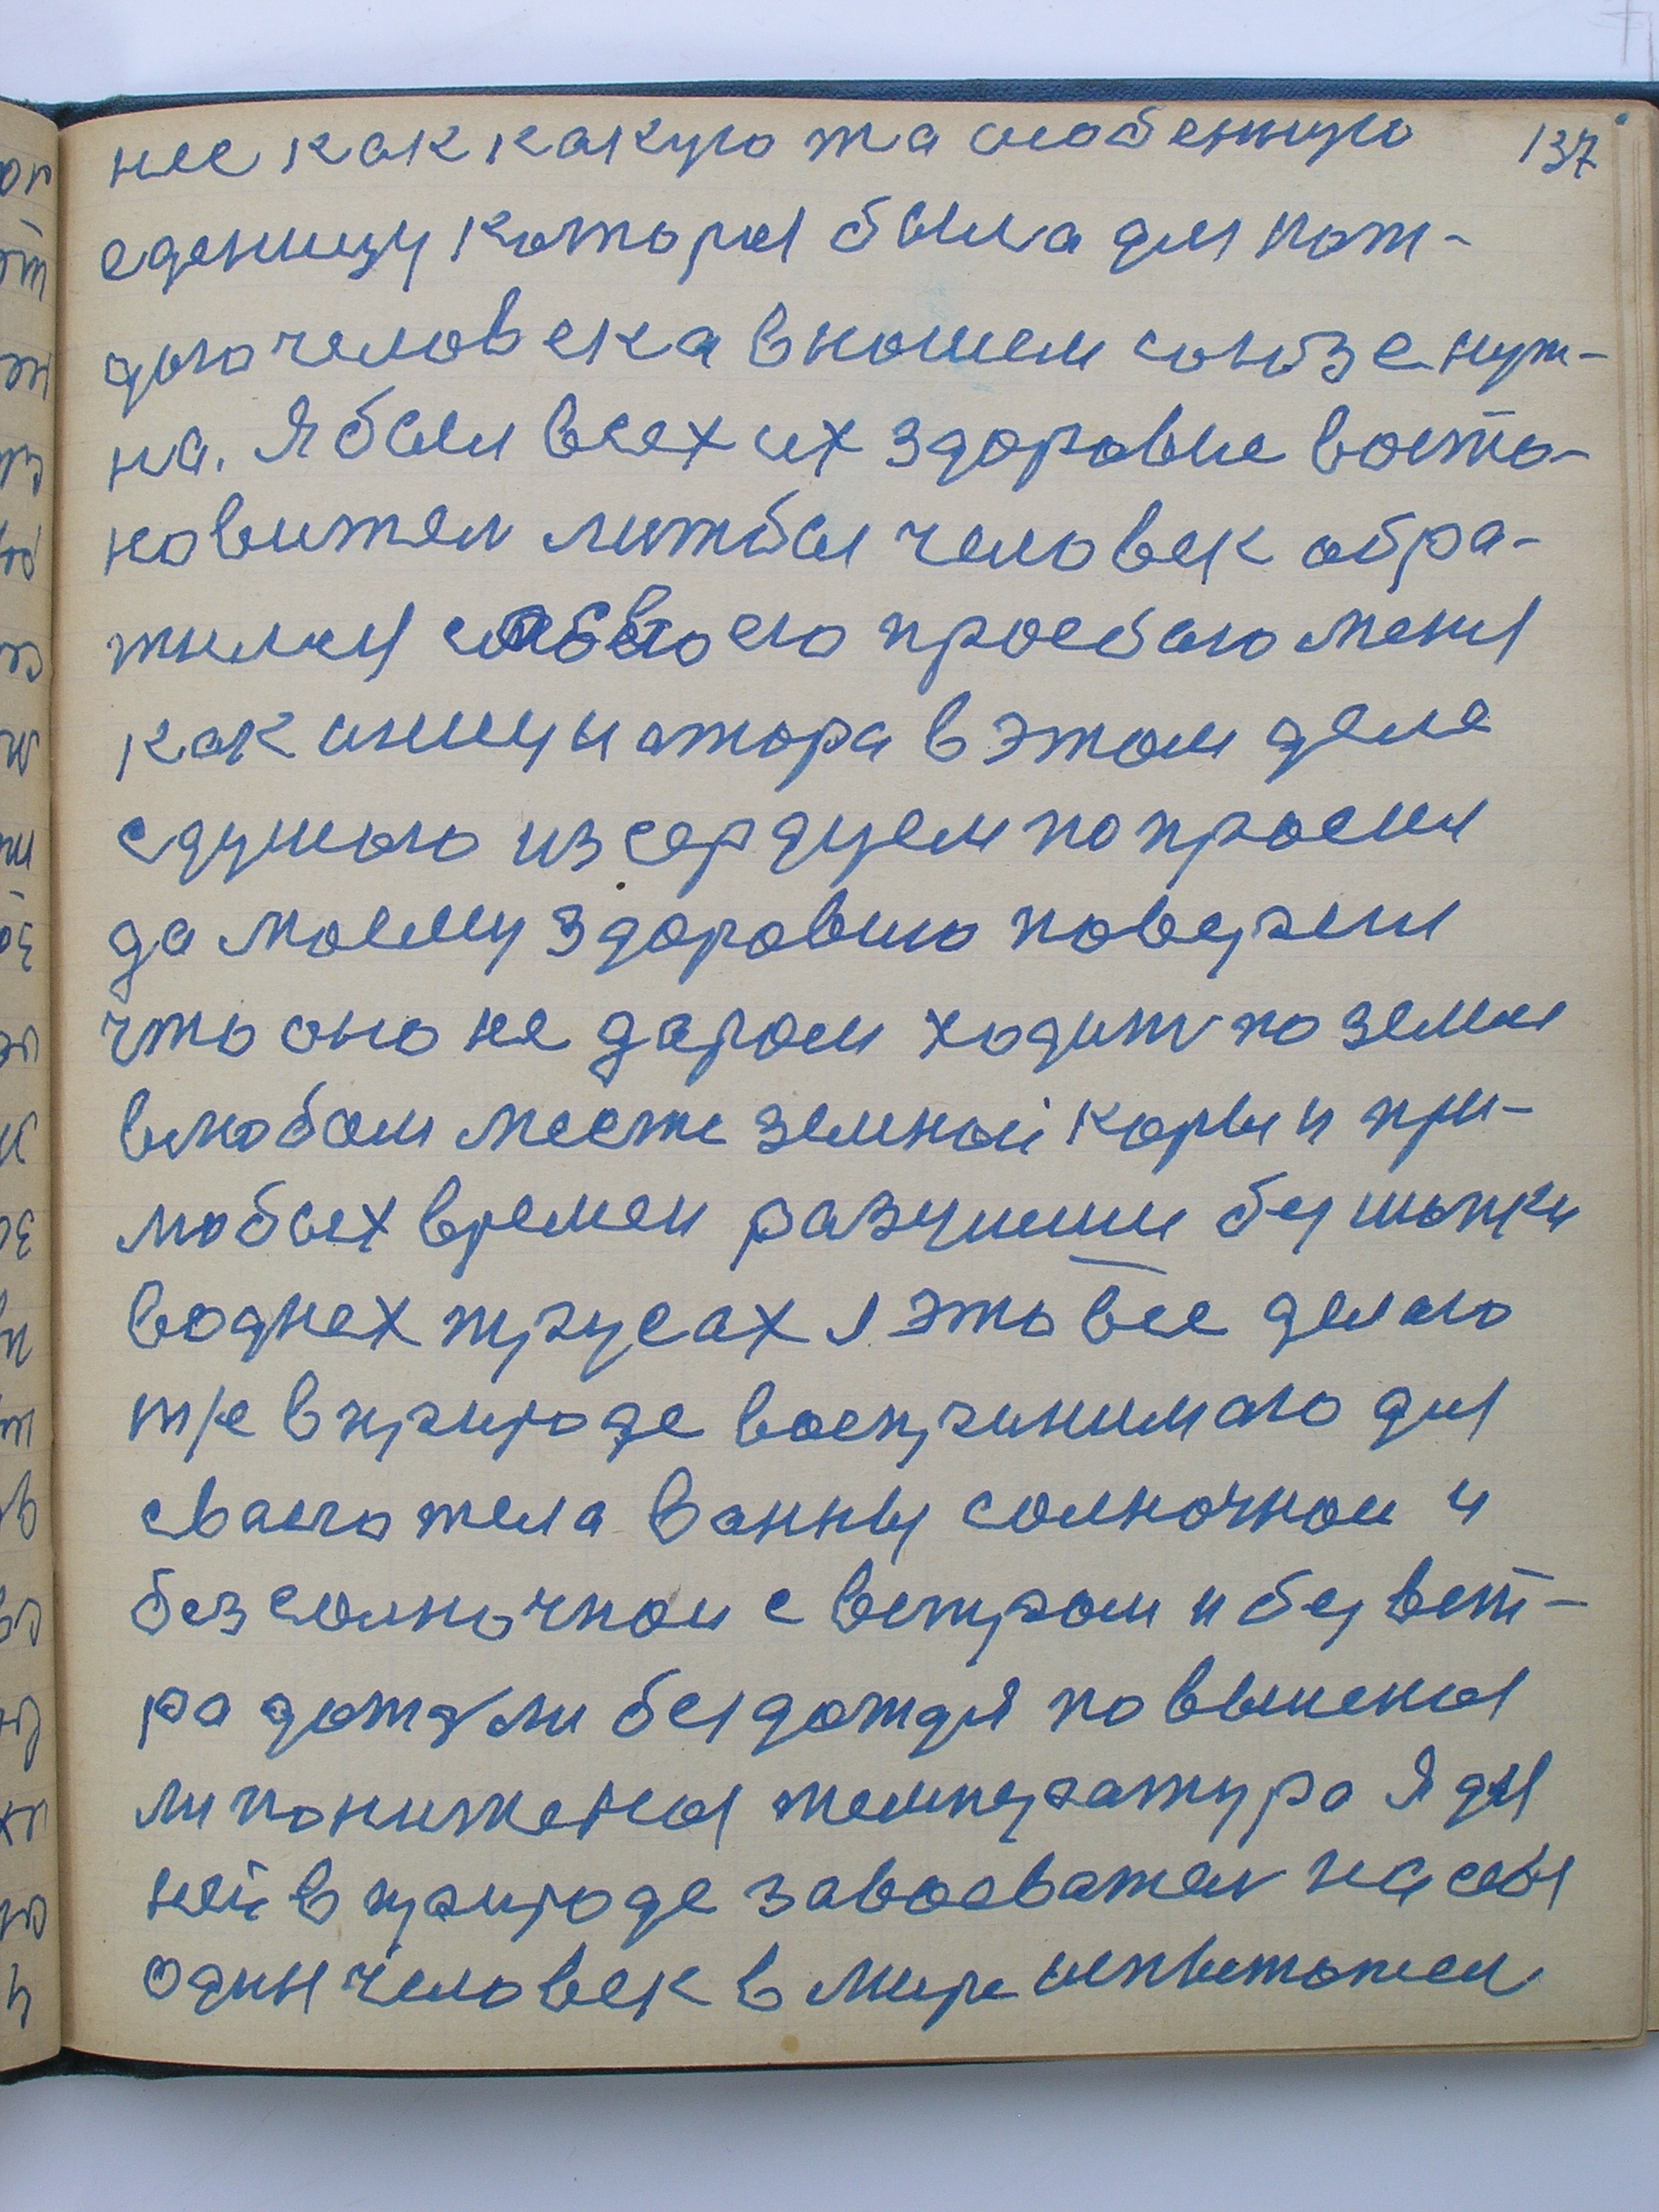 137
нее как какую та особенную
еденицу которая была для каж-
дого человека в нашем союзе нуж-
на. Я был всех их здоровие воста-
новител лиж бы человек обра-
тился своею прозбою меня
как инициатора в этом деле
с душою и з сердцем попросил
да моему здоровию поверил
что оно не даром ходит по земле
в любом месте земной коры и при
любых времен разувши без шапки
в однех трусах я это все делаю
тже в природе воспринимаю для
сваего тела ванны солночнои и
без солночнои с ветром и без вет-
ра дождь ли без дождя повышеная
ли пониженая температура Я для
ней в природе завоевател на собя
один человек в мире испытател